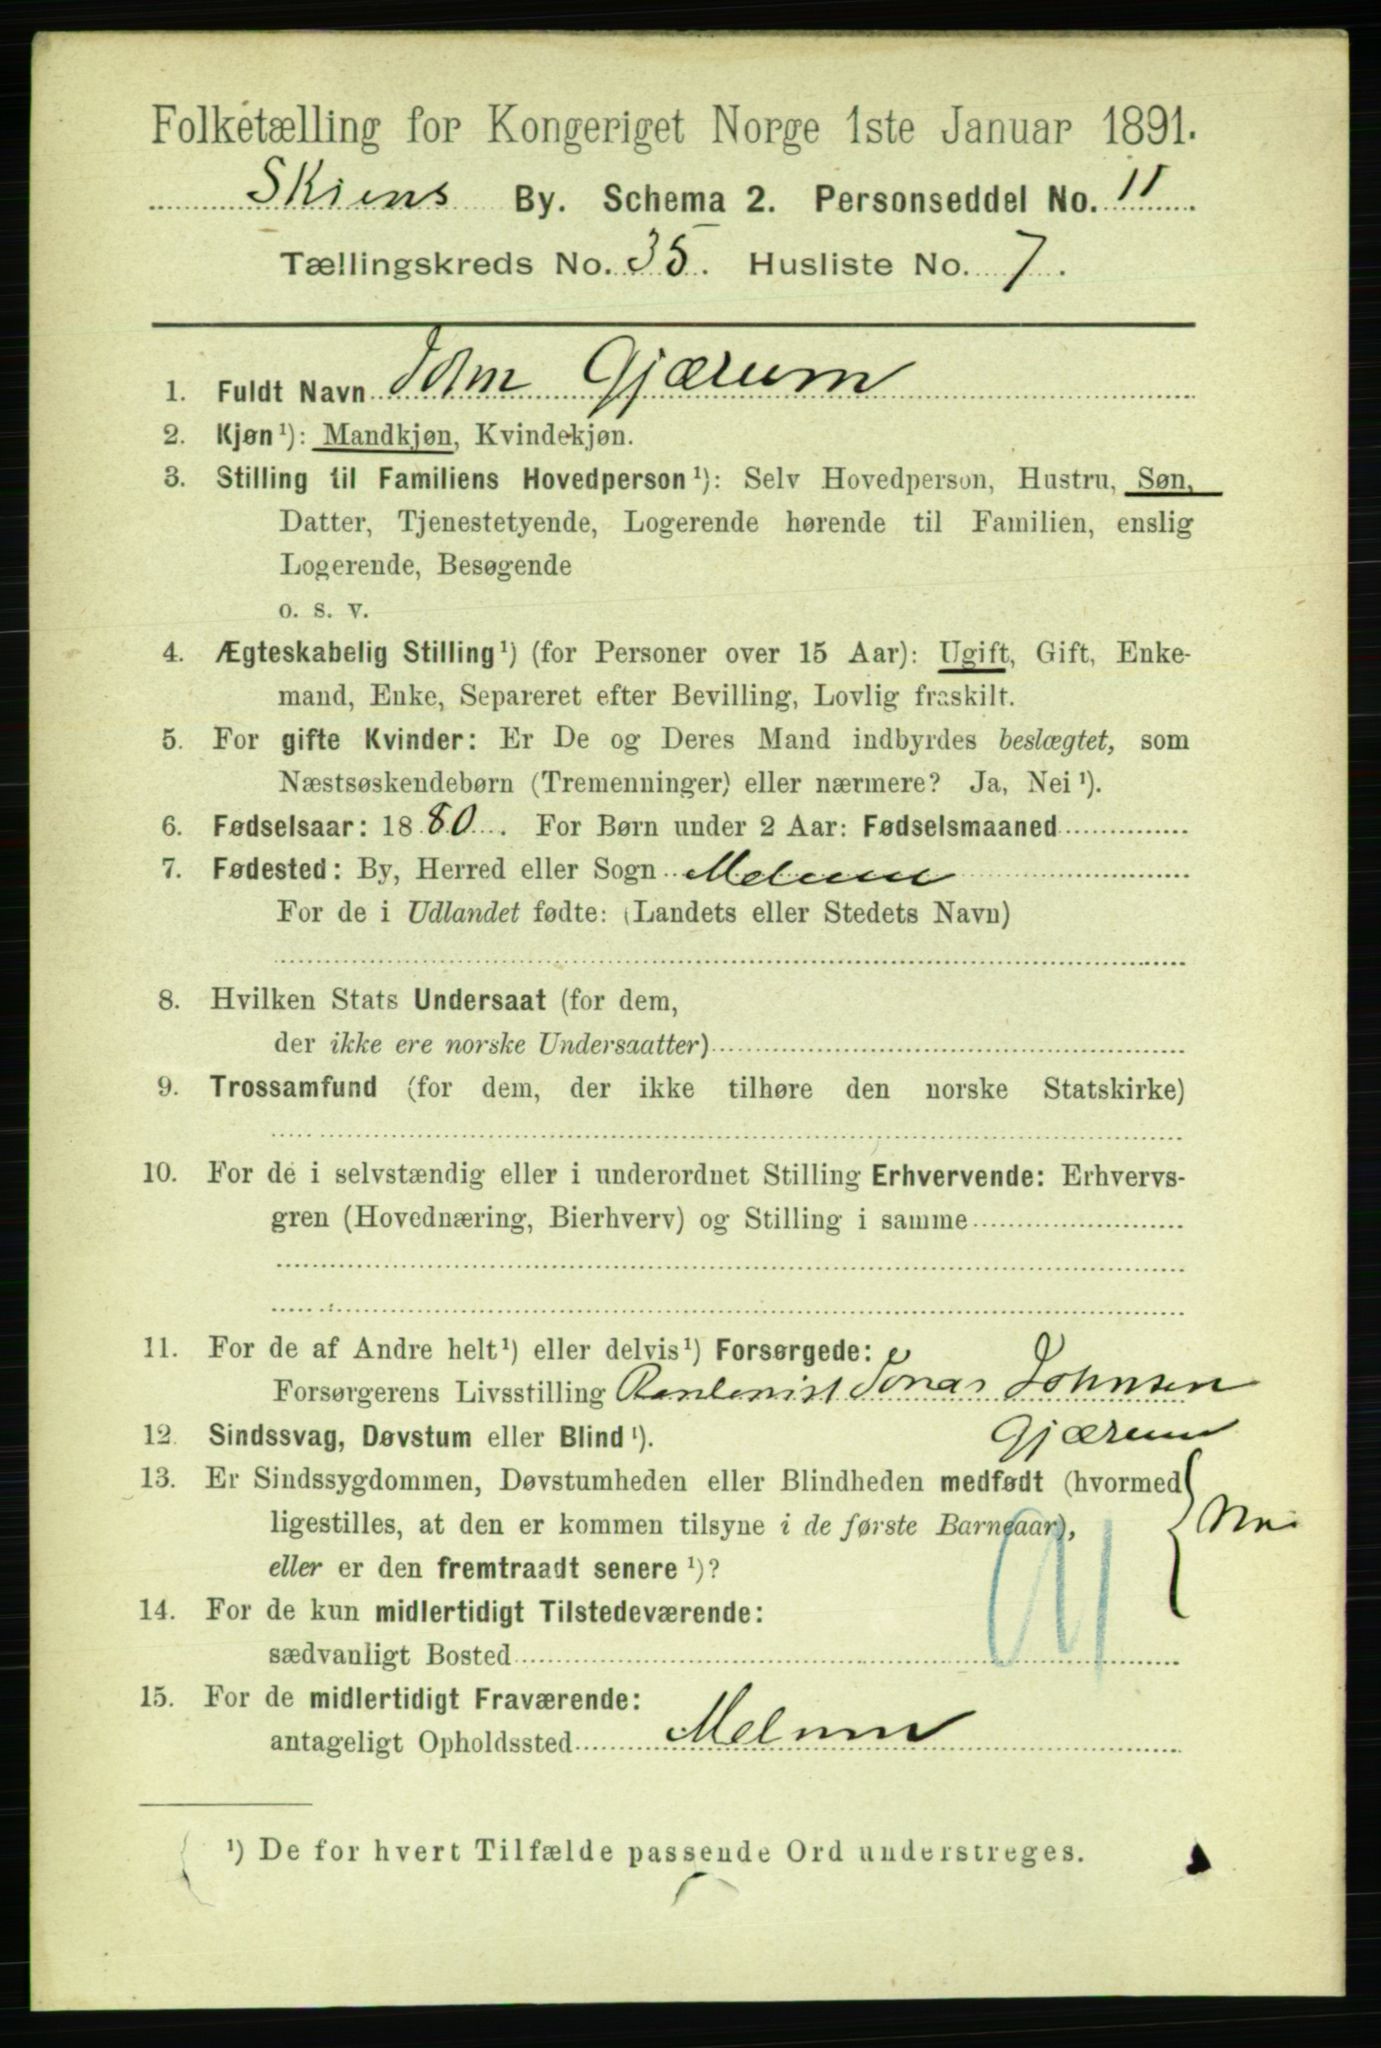 Folketælling for Kongeriget Norge 1ste Januar 1891.
Skiens By. Schema 2. Personseddel No. 11
Tællingskreds No. 35. Husliste No. 7.
1. Fuldt Navn John Gjærum
2. Kjøn¹): Mandkjøn, Kvindekjøn.
3. Stilling til Familiens Hovedperson¹): Selv Hovedperson, Hustru, Søn,
Datter, Tjenestetyende, Logerende hørende til Familien, enslig
Logerende, Besøgende
o. s. v.
4. Ægteskabelig Stilling¹) (for Personer over 15 Aar): Ugift, Gift, Enke-
mand, Enke, Separeret efter Bevilling, Lovlig fraskilt.
5. For gifte Kvinder: Er De og Deres Mand indbyrdes beslægtet, som
Næstsøskendebørn (Tremenninger) eller nærmere? Ja, Nei¹).
6. Fødselsaar: 1880. For Børn under 2 Aar: Fødselsmaaned
7. Fødested: By, Herred eller Sogn Melum
For de i Udlandet fødte: (Landets eller Stedets Navn)
8. Hvilken Stats Undersaat (for dem,
der ikke ere norske Undersaatter)
9. Trossamfund (for dem, der ikke tilhøre den norske Statskirke)
10. For de i selvstændig eller i underordnet Stilling Erhvervende: Erhvervs-
gren (Hovednæring, Bierhverv) og Stilling i samme
11. For de af Andre helt¹) eller delvis¹) Forsørgede:
Forsørgerens Livsstilling Rentenist Jonas Johnsen
Gjærum
12. Sindssvag, Døvstum eller Blind¹).
13. Er Sindssygdommen, Døvstumheden eller Blindheden medfødt (hvormed
ligestilles, at den er kommen tilsyne i de første Barneaar), Nei
eller er den fremtraadt senere¹)?
14. For de kun midlertidigt Tilstedeværende:
sædvanligt Bosted
15. For de midlertidigt Fraværende:
antageligt Opholdssted Melum
¹) De for hvert Tilfælde passende Ord understreges.